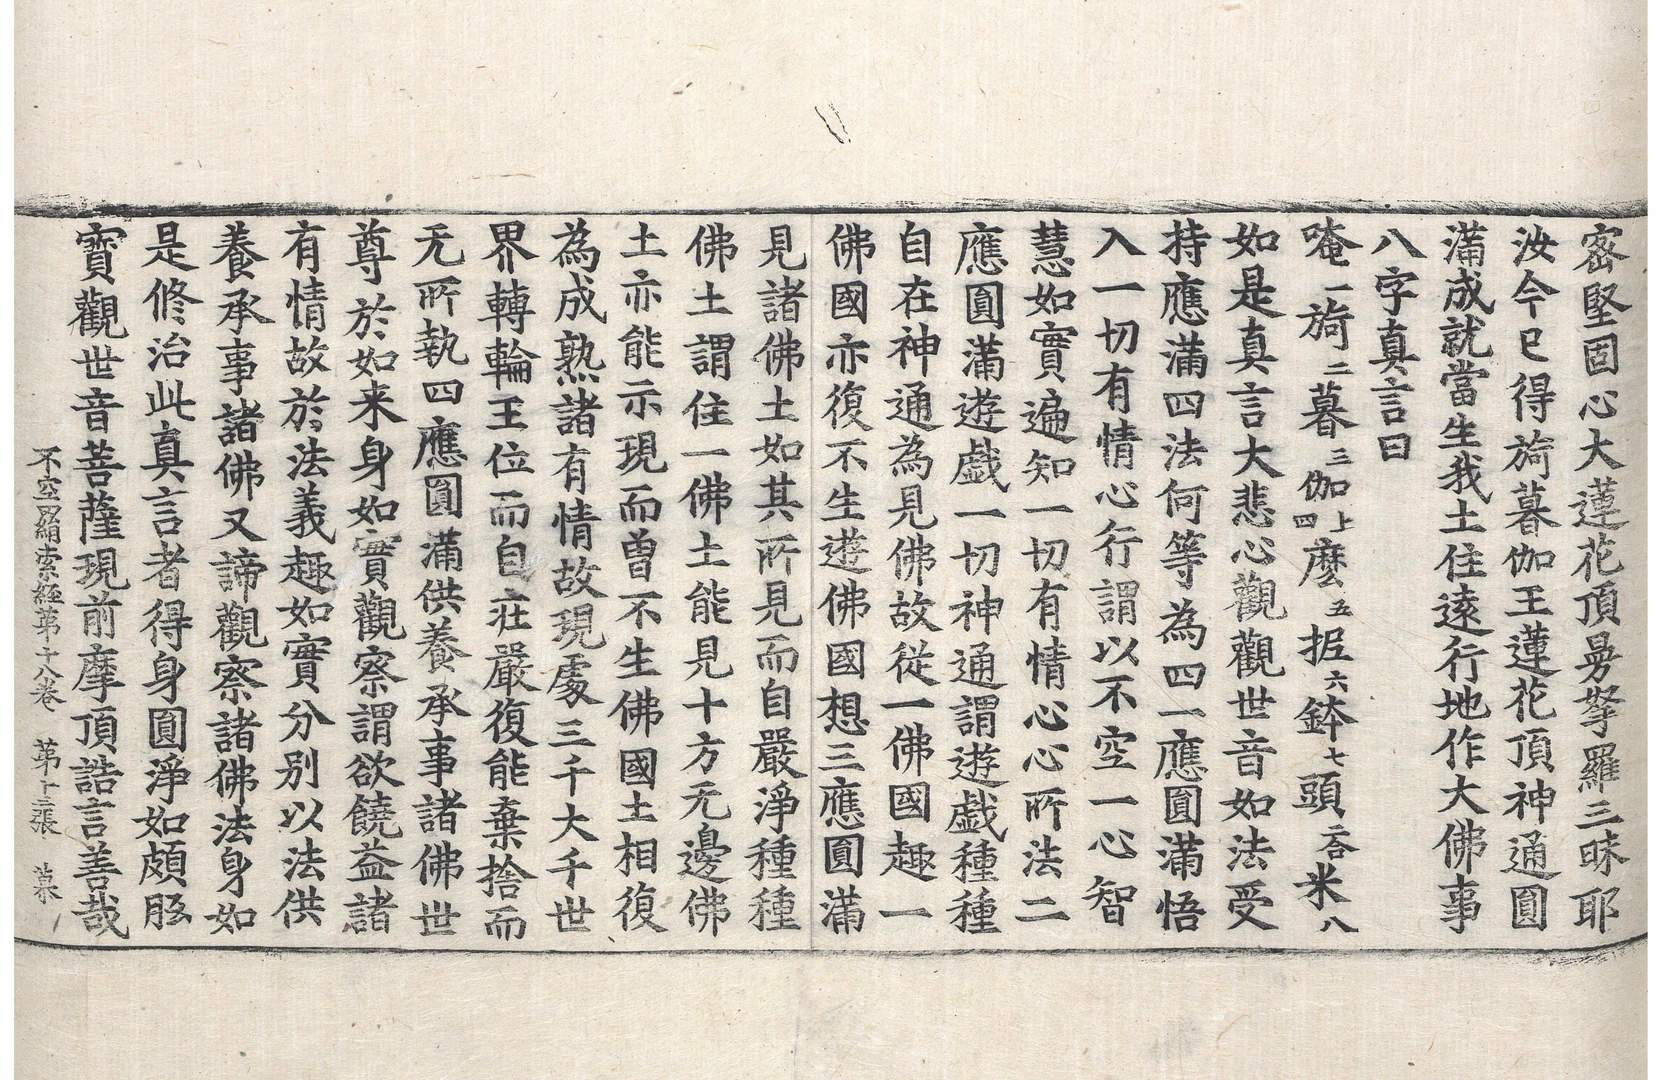 密堅固心大蓮花頂曼拏羅三昧耶
汝今已得旖暮伽王蓮花頂神通圓
滿成就當生我土住遠行地作大佛事
八字真言曰
唵一旖二暮三伽上四麼五抳六鉢七頭二合米八
如是真言大悲心觀觀世音如法受
持應滿四法何等為四一應圓滿悟
入一切有情心行謂以不空一心智
慧如實遍知一切有情心心所法二
應圓滿遊戲一切神通謂遊戲種種
自在神通為見佛故從一佛國趣一
佛國亦復不生遊佛國想三應圓滿
見諸佛土如其所見而自嚴淨種種
佛土謂住一佛土能見十方无邊佛
土亦能示現而曾不生佛國土相復
為成熟諸有情故現處三千大千世
界轉輪王位而自莊嚴復能棄捨而
无所執四應圓滿供養承事諸佛世
尊於如来身如實觀察謂欲饒益諸
有情故於法義趣如實分別以法供
養承事諸佛又諦觀察諸佛法身如
是修治此真言者得身圓淨如頗胝
寶觀世音菩薩現前摩頂誥言善哉
不空罥索經第十八卷 第十三張 慕